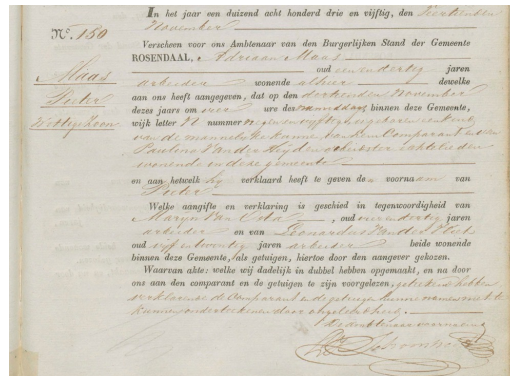 In het jaar een duizend acht honderd drie en vijftig, den veertienden
November
Nº. 150
Verscheen voor ons Ambtenaar van den Burgerlijken Stand der Gemeente
ROSENDAAL, Adriaan Maas
oud een en dertig jaren
Maas
arbeider wonende alhier dewelke
Pieter
aan ons heeft aangegeven, dat op den dertienden November
Wettige Zoon
dezes jaars om vier ure des namiddags binnen deze Gemeente,
wijk letter nummer negen en vijftig is geboren een kind
van de mannelijke kunne, van hem Comparant en van
Paulina Van der Heijden echtelieden
wonende in deze gemeente
en aan hetwelk hij verklaard heeft te geven den voornaam van
Pieter
Welke aangifte en verklaring is geschied in tegenwoordigheid van
Marijn Van, oud vier en dertig jaren
arbeider en van Leonardus Van der
oud vijf en twintig jaren arbeider beide wonende
binnen deze Gemeente, als getuigen, hiertoe door den aangever gekozen.
Waarvan akte: welke wij dadelijk in dubbel hebben opgemaakt, en na door
ons aan den comparant en de getuigen te zijn voorgelezen, geteekend hebben
verklarende de Comparant en de getuigen hunne namen niet te
kunnen onderteekenen door ongeleerdheid.
De Ambtenaar voornoemd